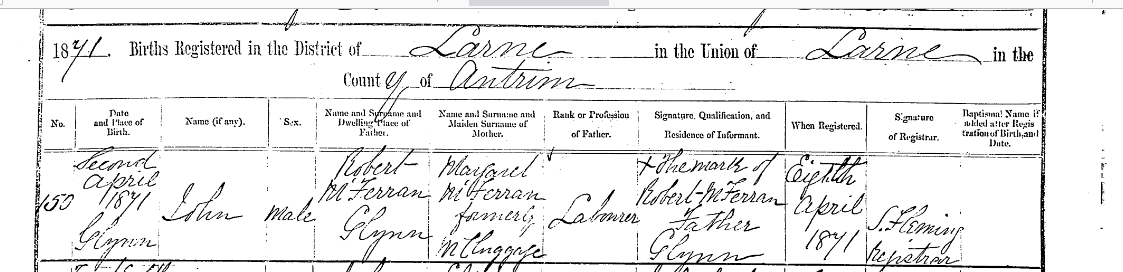 1871. Births Registered in the District of Larne in the Union of Larne in the
County of Antrim
No.
Date
and Place of
Birth.
Name (if any).
Sex.
Name and Surname and
Dwelling Place of
Father.
Name and Surname and
Maiden Surname of
Mother.
Rank or Profession
of Father.
Signature, Qualification, and
Residence of Informant.
When Registered.
Signature
of Registrar.
Baptismal Name if
added after Regis
tration of Birth, and
Date.
150
Second
April
1871
Glynn
John
Male
Robert
McFerran
Glynn
Margaret
McFerran
formerly
McCluggage
Labourer
X The mark of
Robert McFerran
Father
Glynn
Eighth
April
1871
S. Fleming
Registrar